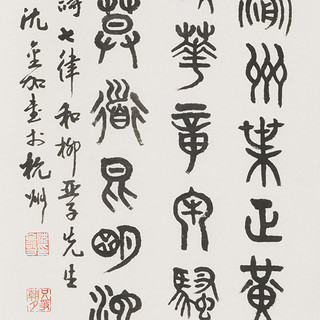 渝州葉正黃
華章牢騷
莫道昆明池
詩七律和柳亞子先生
沈書於杭州